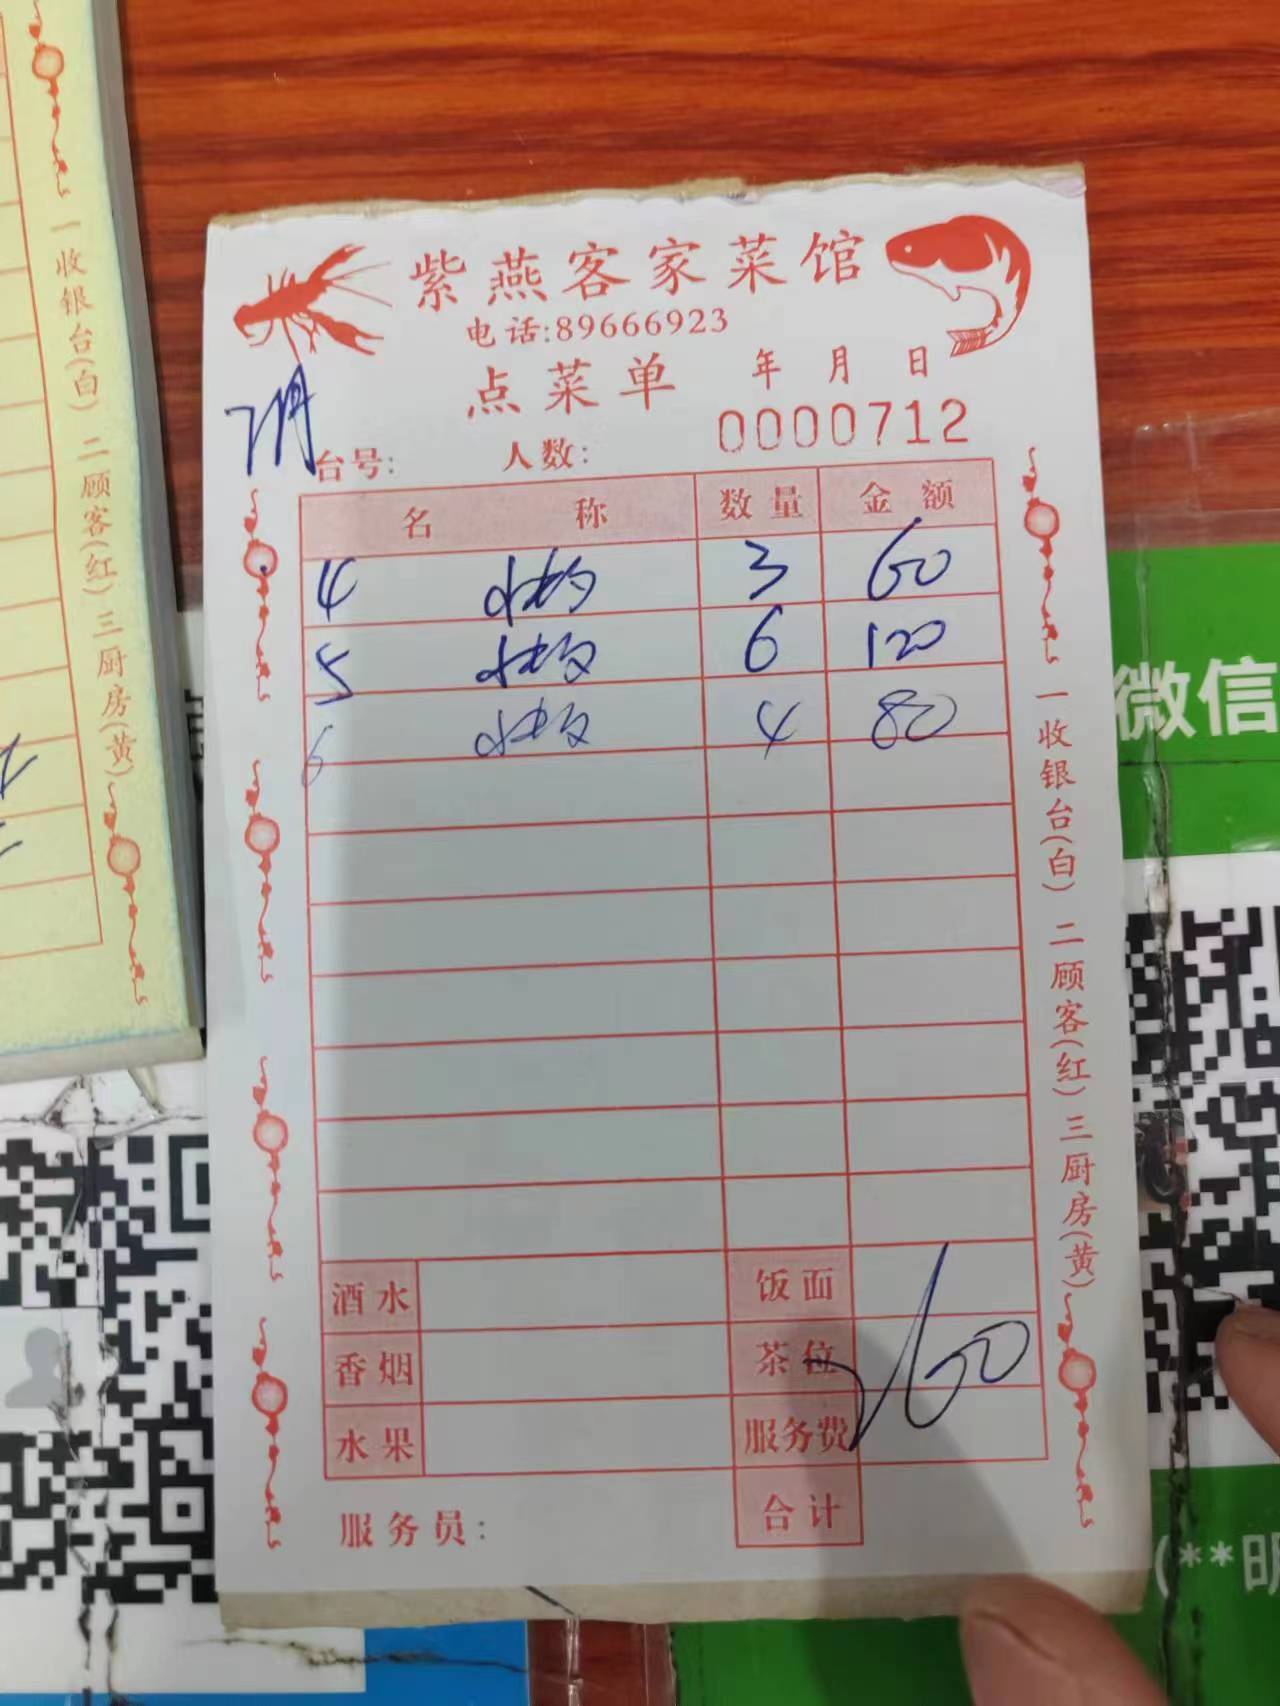 紫燕客家菜馆
电话:89666923
点菜单 年 月 日
0000712
7月
台号: 人数:
名 称 数量 金额
4 快 3 60
5 快 6 120
6 快 4 80
酒水 饭面
香烟 茶位
水果 服务费
260
合计
服务员:
一收银台(白) 二顾客(红) 三厨房(黄)
一收银台(白) 二顾客(红) 三厨房(黄)
微信
(**明